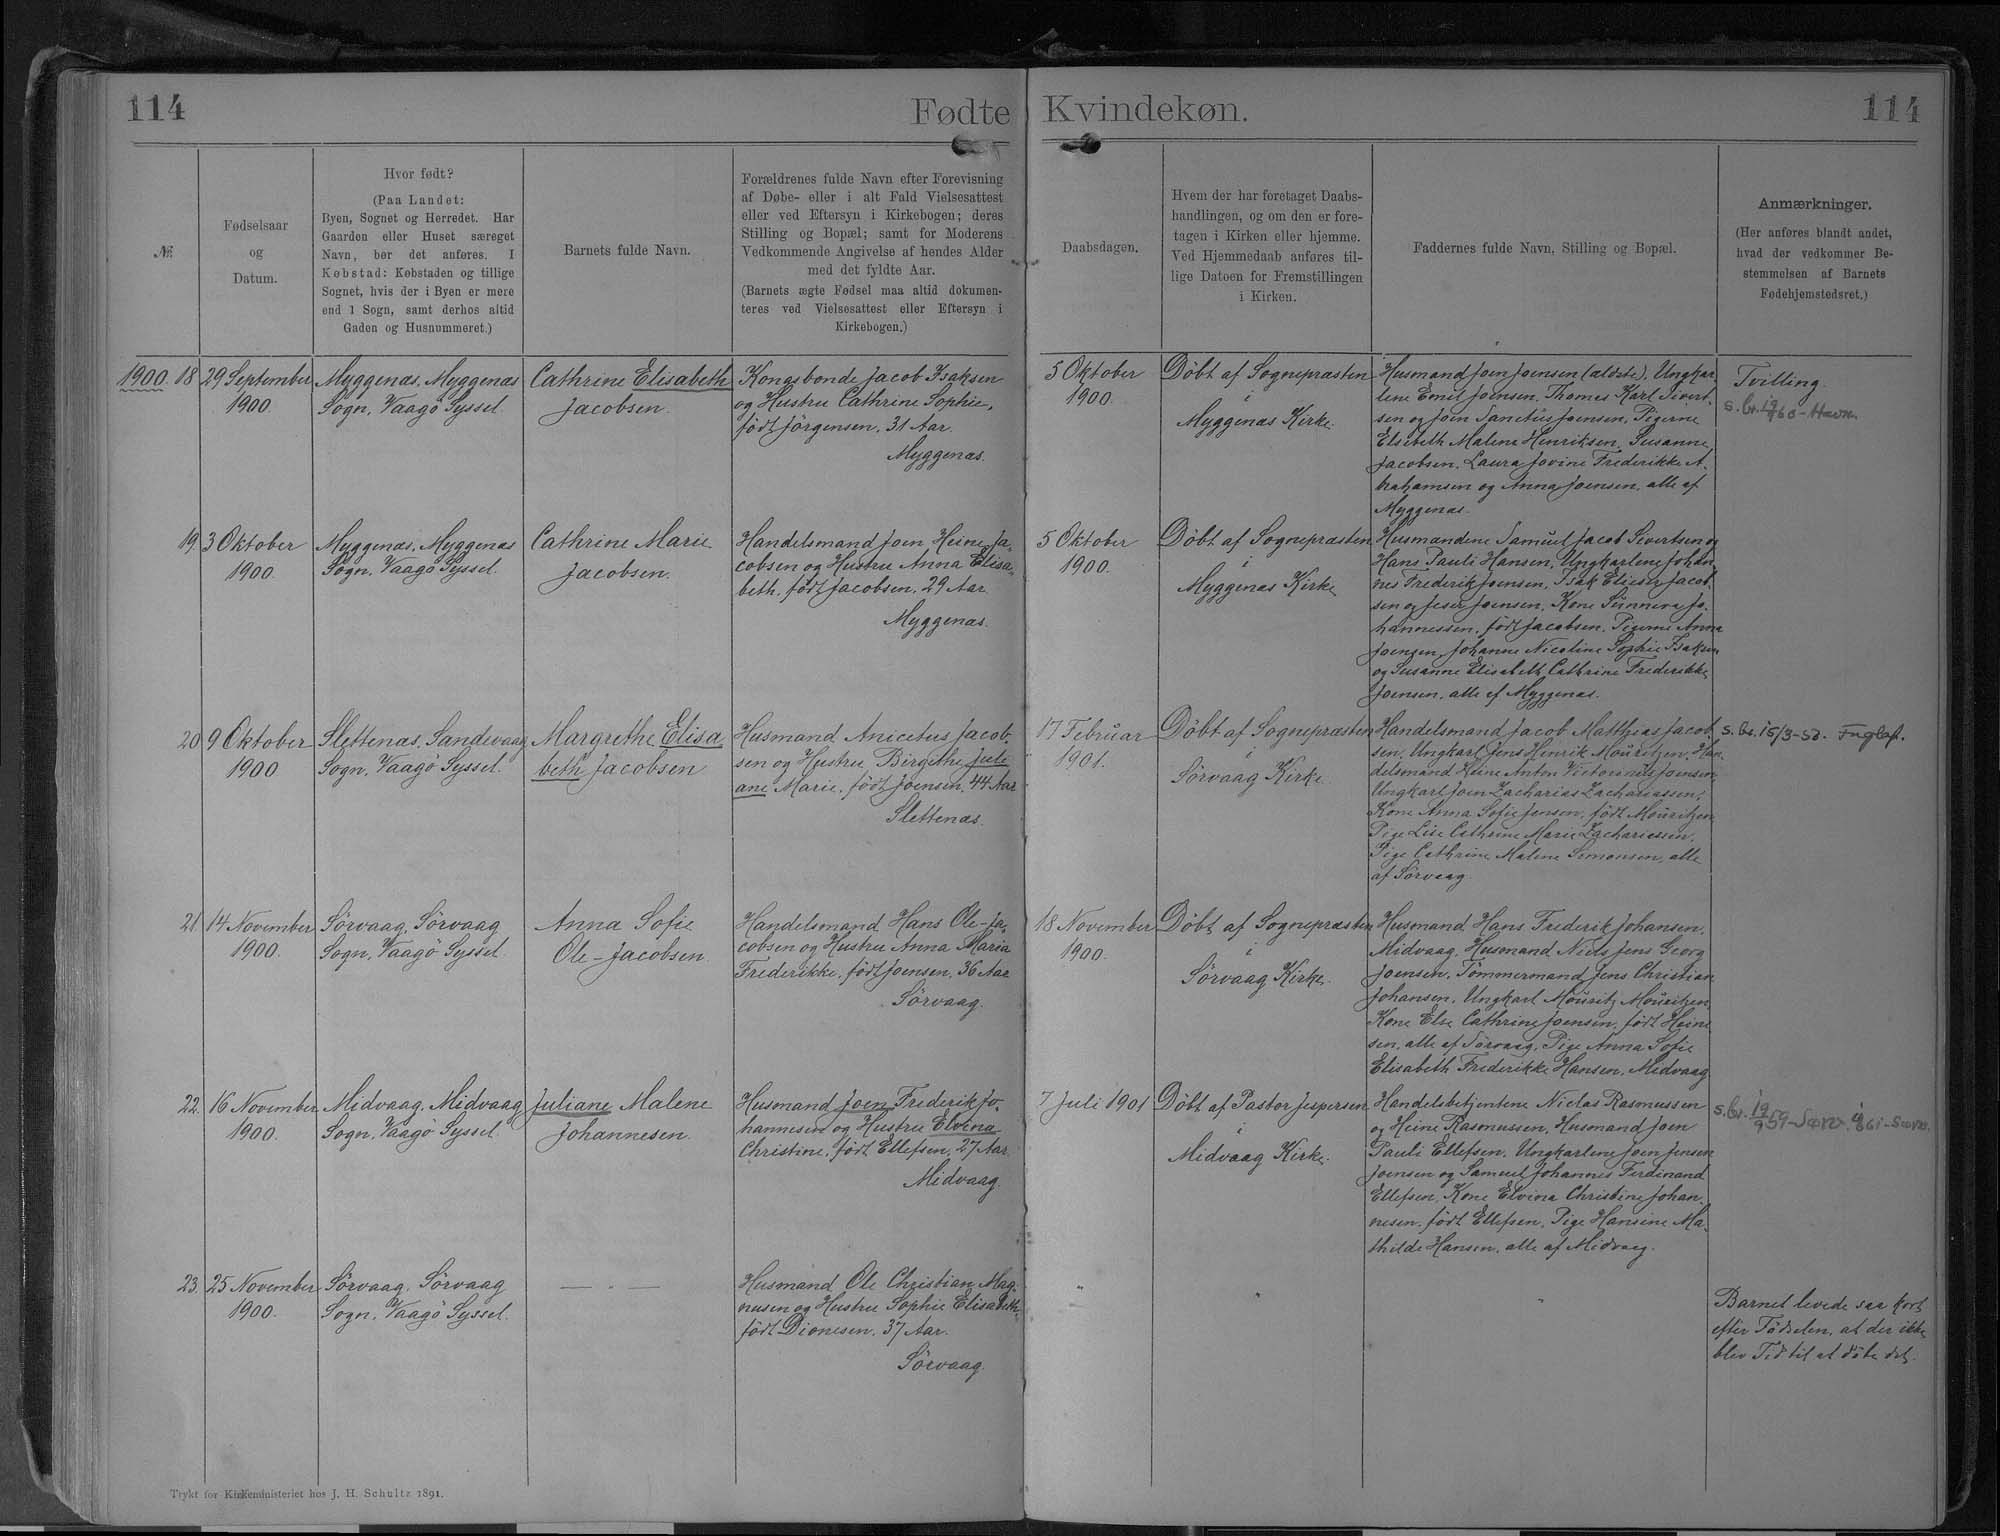 114
Fødte
Kvindekøn.
114
№
Fødselsaar
og
Datum.
Hvor født?
(Paa Landet:
Byen, Sognet og Herredet. Har
Gaarden eller Huset særeget
Navn, bør det anføres. I
Købstad: Købstaden og tillige
Sognet, hvis der i Byen er mere
end 1 Sogn, samt derhos altid
Gaden og Husnummeret.)
Barnets fulde Navn.
Forældrenes fulde Navn efter Forevisning
af Døbe- eller i alt Fald Vielsesattest
eller ved Eftersyn i Kirkebogen; deres
Stilling og Bopæl; samt for Moderens
Vedkommende Angivelse af hendes Alder
med det fyldte Aar.
(Barnets ægte Fødsel maa altid dokumen-
teres ved Vielsesattest eller Eftersyn i
Kirkebogen.)
Daabsdagen.
Hvem der har foretaget Daabs-
handlingen, og om den er fore-
tagen i Kirken eller hjemme.
Ved Hjemmedaab anføres til-
lige Datoen for Fremstillingen
i Kirken.
Faddernes fulde Navn, Stilling og Bopæl.
Anmærkninger.
(Her anføres blandt andet,
hvad der vedkommer Be-
stemmelsen af Barnets
Fødehjemstedsret.)
1900. 18
29 September
1900.
Myggenæs, Myggenæs
Sogn, Vaagö Syssel.
Cathrine Elisabeth
Jacobsen.
Kongsbonde Jacob Isaksen
og Hustru Cathrine Sophie,
født Jörgensen, 31 Aar.
Myggenæs.
5 Oktober
1900.
Döbt af Sognepræsten
i
Myggenæs Kirke.
Husmand Joen Joensen (ældste), Ungkar-
lene Emil Joensen, Thomas Karl Sivert-
sen og Joen Sanctus Joensen, Pigerne
Elsebeth Malene Henriksen, Susanne
Jacobsen, Laura Jovine Frederikke A-
brahamsen og Anna Joensen, alle af
Myggenæs.
Tvilling.
19.
3 Oktober
1900.
Myggenæs, Myggenæs
Sogn, Vaagö Syssel.
Cathrine Marie
Jacobsen.
Handelsmand Joen Heine Ja-
cobsen og Hustru Anna Elisa-
beth, født Jacobsen, 29 Aar.
Myggenæs.
5 Oktober
1900.
Döbt af Sognepræsten
i
Myggenæs Kirke
Husmændene Samuel Jacob Sivertsen og
Hans Pauli Hansen, Ungkarlene Johan-
nes Frederik Joensen, Isak Elieser Jacob-
sen og Joensen, Kone Sunneva Jo-
hannessen, født Jacobsen, Pigerne Anna
Joensen, Johanne Nicoline Sophie Isaksen
og Susanne Elisabeth Cathrine Frederikke
Joensen, alle af Myggenæs.
20
9 Oktober
1900
Slettenæs, Sandevaag
Sogn, Vaagö Syssel.
Margrethe Elisa
beth Jacobsen
Husmand Anicetus Jacob-
sen og Hustru Birgithe Juli
ane Marie, født Joensen, 44 Aar
Slettenæs.
17 Februar
1901.
Döbt af Sognepræsten
i
Sörvaag Kirke
Handelsmand Jacob Matthias Jacob-
sen, Ungkarl Jens Henrik Mouritzen, Han-
delsmand Heine Anton Victorinus Joensen
Ungkarl Joen Zacharias Zachariassen,
Kone Anna Sofie Jensen, født Mouritzen
Pige Lise Cathrine Marie Zachariessen,
Pige Cathrine Malene Simonsen, alle
af Sörvaag
s. br. 15/3-50. Fuglaf.
21.
14 November
1900.
Sörvaag, Sörvaag
Sogn, Vaagö Syssel.
Anna Sofie
Ole-Jacobsen
Handelsmand Hans Ole-Ja-
cobsen og Hustru Anna Maria
Frederikke, født Joensen, 36 Aar
Sörvaag.
18 November
1900.
Döbt af Sognepræsten
i
Sörvaag Kirke.
Husmand Hans Frederik Johansen,
Midvaag, Husmand Niels Jens Georg
Joensen, Tömmermand Jens Christian
Johansen, Ungkarl Mouritz Mouritzen,
Kone Else Cathrine Joensen, født Heine
sen, alle af Sörvaag, Pige Anna Sofie
Elisabeth Frederikke Hansen, Midvaag
22.
16 November
1900.
Midvaag, Midvaag
Sogn, Vaagö Syssel
Juliane Malene
Johannesen
Husmand Joen Frederik Jo-
hannesen og Hustru Elvina
Christine, født Ellefsen, 27 Aar.
Midvaag.
7 Juli 1901
Döbt af Pastor Jespersen
i
Midvaag Kirke.
Handelsbetjentene Niclas Rasmussen
og Heine Rasmussen, Husmand Joen
Pauli Ellefsen, Ungkarlene Joen Jensen
Joensen og Samuel Johannes Ferdinand
Ellefsen, Kone Elvina Christine Johan-
nesen, født Ellefsen, Pige Hansine Ma-
thilde Hansen, alle af Midvaag.
23.
25 November
1900.
Sörvaag, Sörvaag
Sogn, Vaagö Syssel.
— " —
Husmand Ole Christian Mag-
nusen og Hustru Sophie Elisabeth,
født Dionesen, 37 Aar.
Sörvaag.
"
"
"
Barnet levede saa kort
efter Födselen, at der ikke
blev Tid til at döbe det.
Trykt for Kirkeministeriet hos J. H. Schultz 1891.